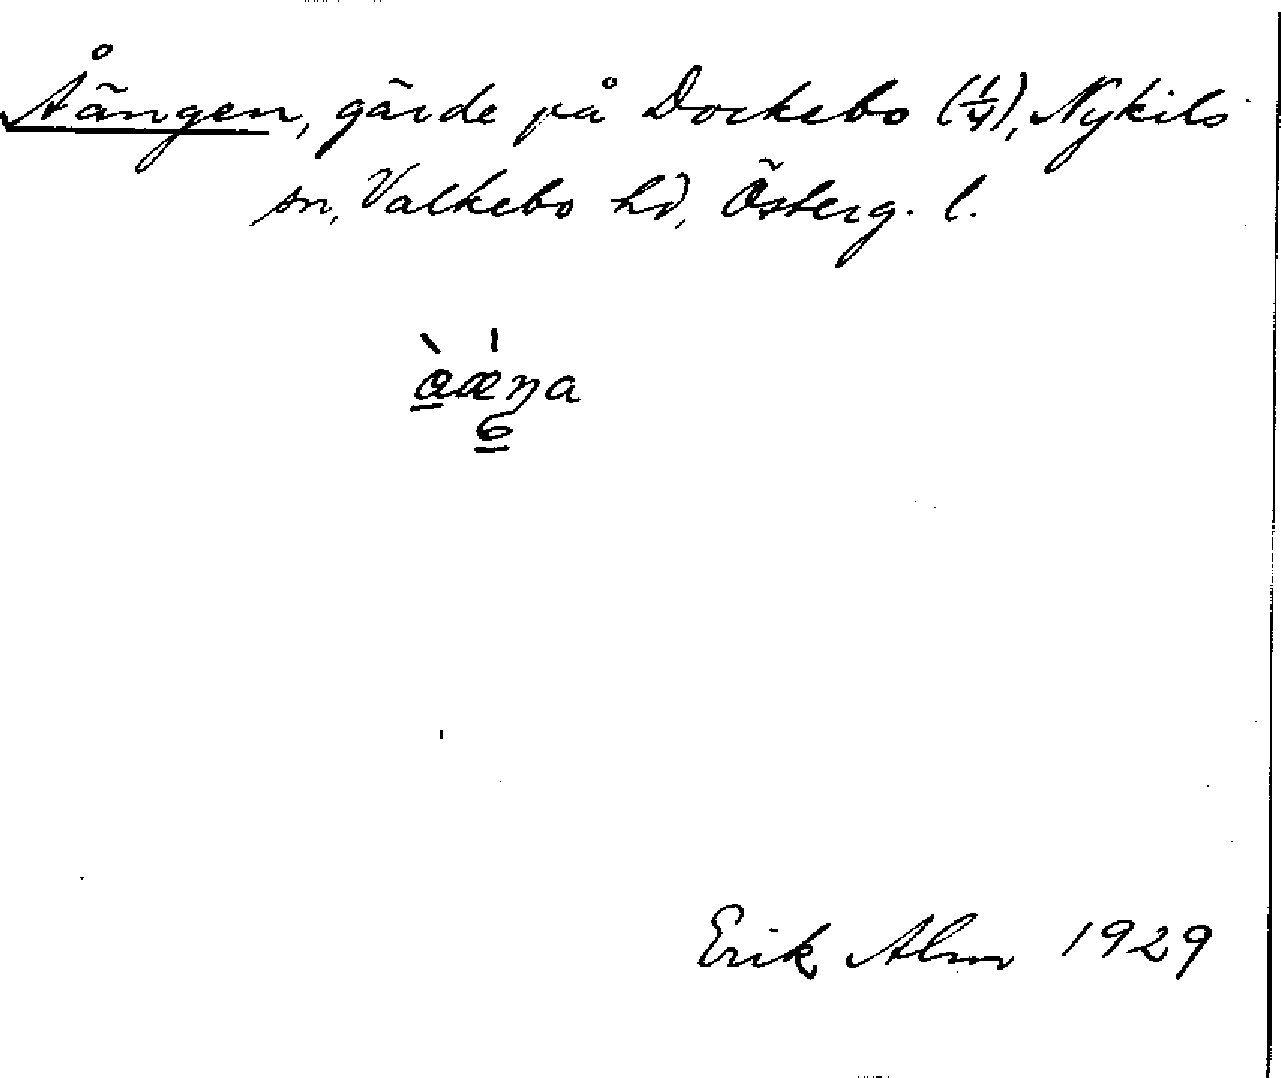 Åängen, gärde på Dockebo (1/4), Nykils
sn, Valkebo hd, Österg. l.
Erik Alm 1929